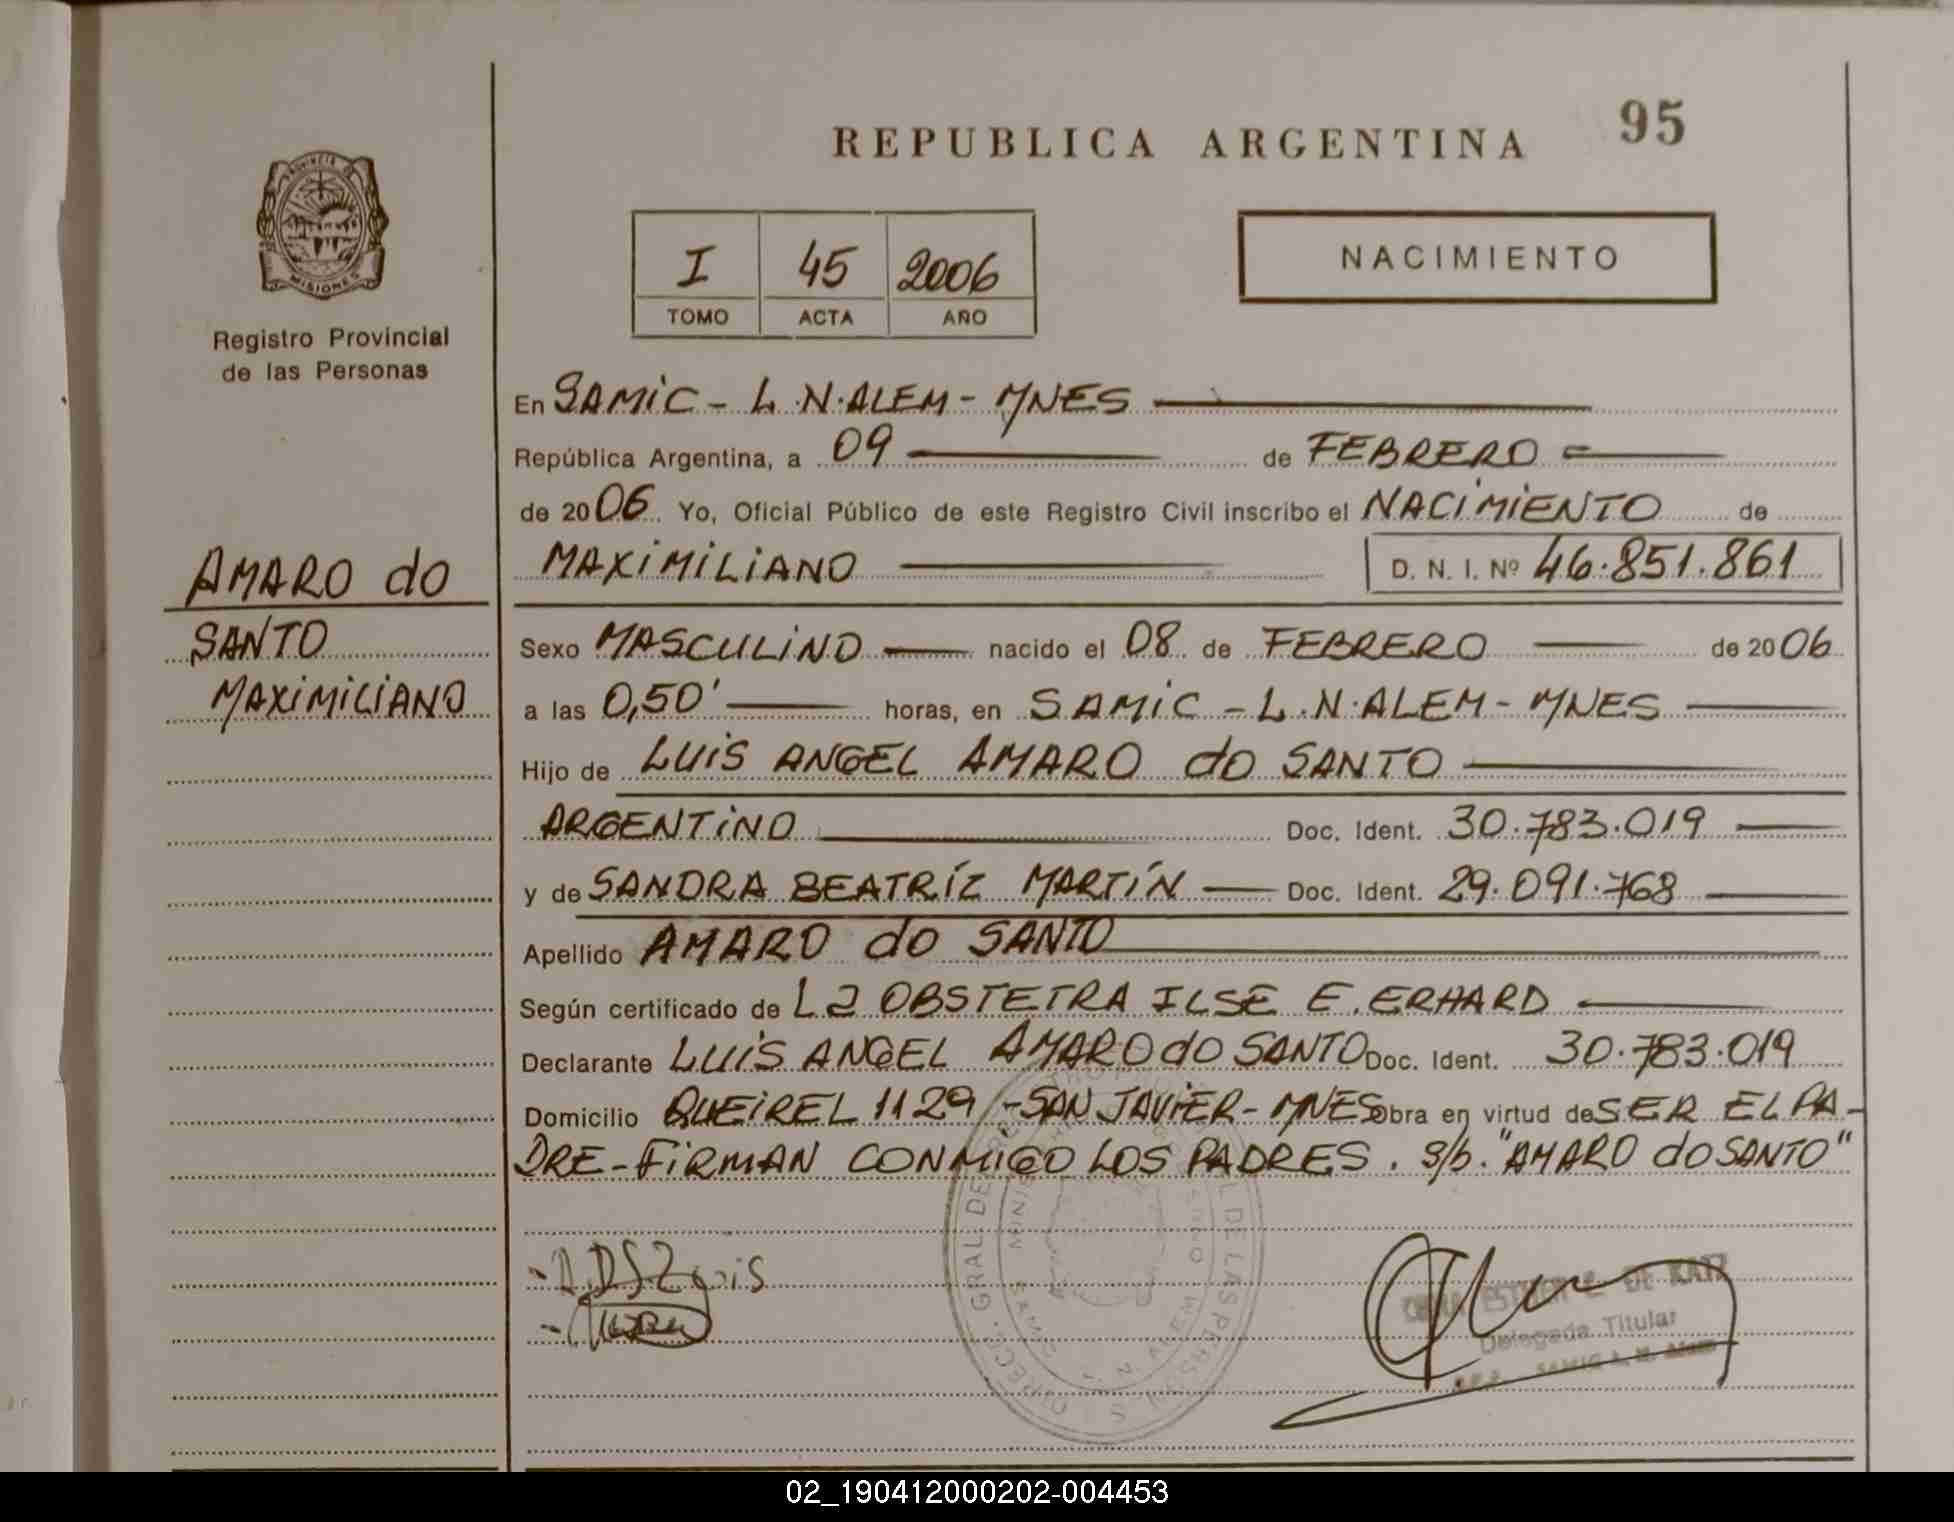 REPUBLICA ARGENTINA 95
PROVINCIA
MISIONES
Registro Provincial
de las Personas
I 45 2006
TOMO ACTA AÑO
NACIMIENTO
AMARO do
SANTO
MAXIMILIANO
En SAMIC - L.N.ALEM - MNES
República Argentina, a 09 de FEBRERO
de 2006 Yo, Oficial Público de este Registro Civil inscribo el NACIMIENTO de
MAXIMILIANO D. N. I. Nº 46.851.861
Sexo MASCULINO nacido el 08 de FEBRERO de 2006
a las 0,50' horas, en SAMIC - L.N.ALEM - MNES
Hijo de LUIS ANGEL AMARO do SANTO
ARGENTINO Doc. Ident. 30.783.019
y de SANDRA BEATRÍZ MARTÍN Doc. Ident. 29.091.768
Apellido AMARO do SANTO
Según certificado de La OBSTETRA ILSE E. ERHARD
Declarante LUIS ANGEL AMARO do SANTO Doc. Ident. 30.783.019
Domicilio QUEIREL 1129 - SAN JAVIER - MNES Obra en virtud de SER EL PA-
DRE - FIRMAN CONMIGO LOS PADRES. S/b. "AMARO do SANTO"
DE KATZ
Delegada Titular
SAMIC L. N. Alem
02_190412000202-004453